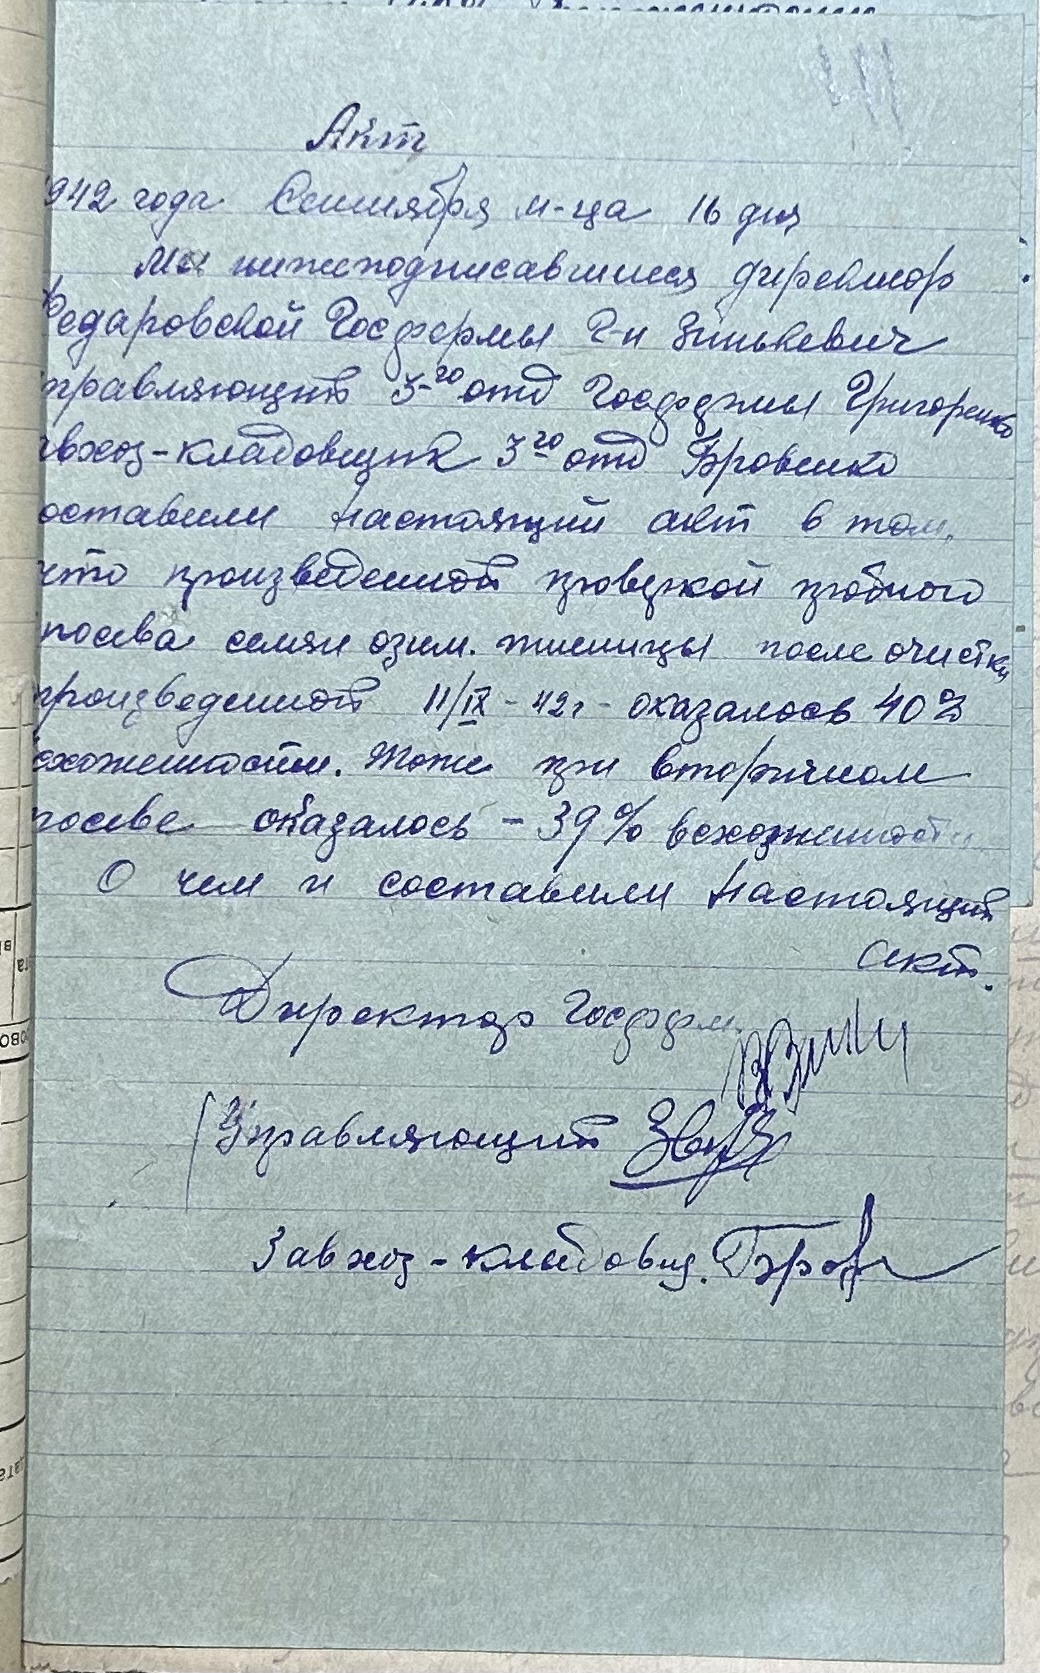 Акт
1942 года Сентября м-ца 16 дня
Мы нижеподписавшиеся директор
Федаровской Госфермы Г-н Зинькевич
управляющий 3-го отд Госфермы Григоренко
завхоз-кладовщик 3го отд Бровенко
составили настоящий акт в том,
что произведенной проверкой пробного
посева семян озим. пшеницы после очистки
произведенной 11/IX - 42 г - оказалось 40%
всхожености. Тоже при вторичном
посеве оказалось - 39% всхожености
О чем и составили настоящий
акт.
Директор Госферм.
Управляющий
Завхоз-кладовщ. Бров